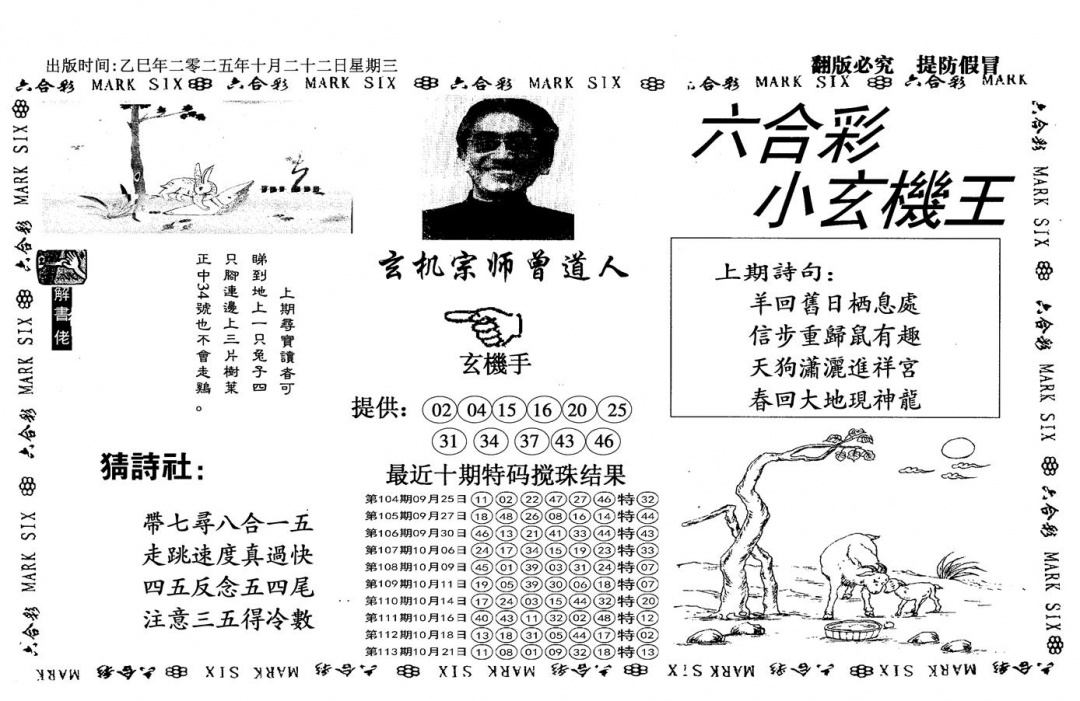 出版时间:乙巳年二零二五年十月二十二日星期三
翻版必究 提防假冒
六合彩 MARK SIX 六合彩 MARK SIX 六合彩 MARK SIX 六合彩 MARK SIX 六合彩 MARK
六合彩
小玄機王
玄机宗师曾道人
玄機手
解書佬
上期尋寶讀者可
睇到地上一只兔子四
只腳連邊上三片樹葉
正中34號也不會走鷄。
上期詩句:
羊回舊日栖息處
信步重歸鼠有趣
天狗瀟灑進祥宮
春回大地現神龍
提供: 02 04 15 16 20 25
31 34 37 43 46
猜詩社:
帶七尋八合一五
走跳速度真過快
四五反念五四尾
注意三五得冷數
最近十期特码搅珠结果
第104期09月25日 11 02 22 47 27 46 特 32
第105期09月27日 18 48 26 08 16 14 特 44
第106期09月30日 46 13 21 41 33 44 特 43
第107期10月06日 24 17 34 15 19 23 特 33
第108期10月09日 45 01 39 03 31 24 特 07
第109期10月11日 19 05 39 30 06 18 特 07
第110期10月14日 17 24 03 15 44 32 特 20
第111期10月16日 40 43 11 32 02 48 特 12
第112期10月18日 13 18 31 05 44 17 特 02
第113期10月21日 11 08 01 09 32 18 特 13
六合彩 MARK SIX 六合彩 MARK SIX 六合彩 MARK SIX 六合彩 MARK SIX
六合彩 MARK SIX 六合彩 MARK SIX 六合彩 MARK SIX
MARK 六合彩 MARK SIX 六合彩 MARK SIX 六合彩 MARK SIX 六合彩 MARK SIX 六合彩